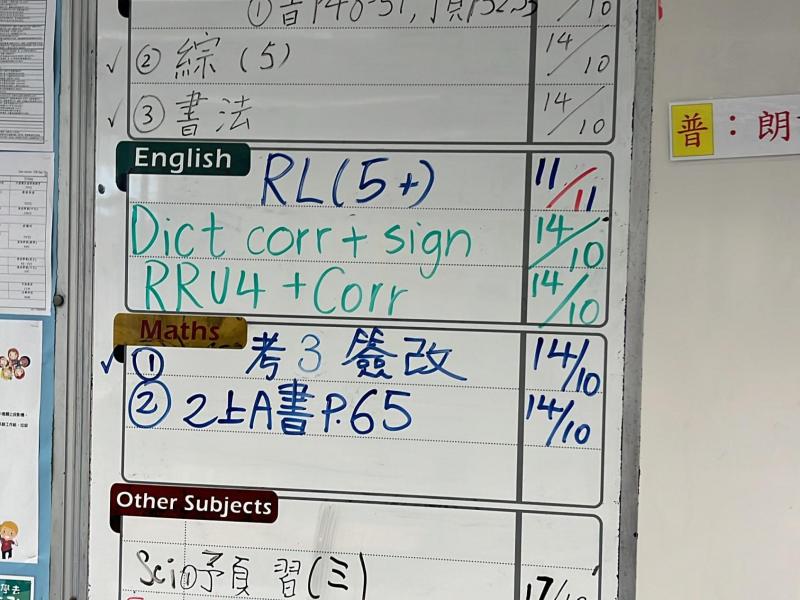 ② 綜 (5) 14/10
③ 書法 14/10
普：朗
English
RL(5+) 11/11
Dict corr + sign 14/10
RRU4 + Corr 14/10
Maths
① 考3 簽改 14/10
② 2上A書P.65 14/10
Other Subjects
Sci 預習(三)